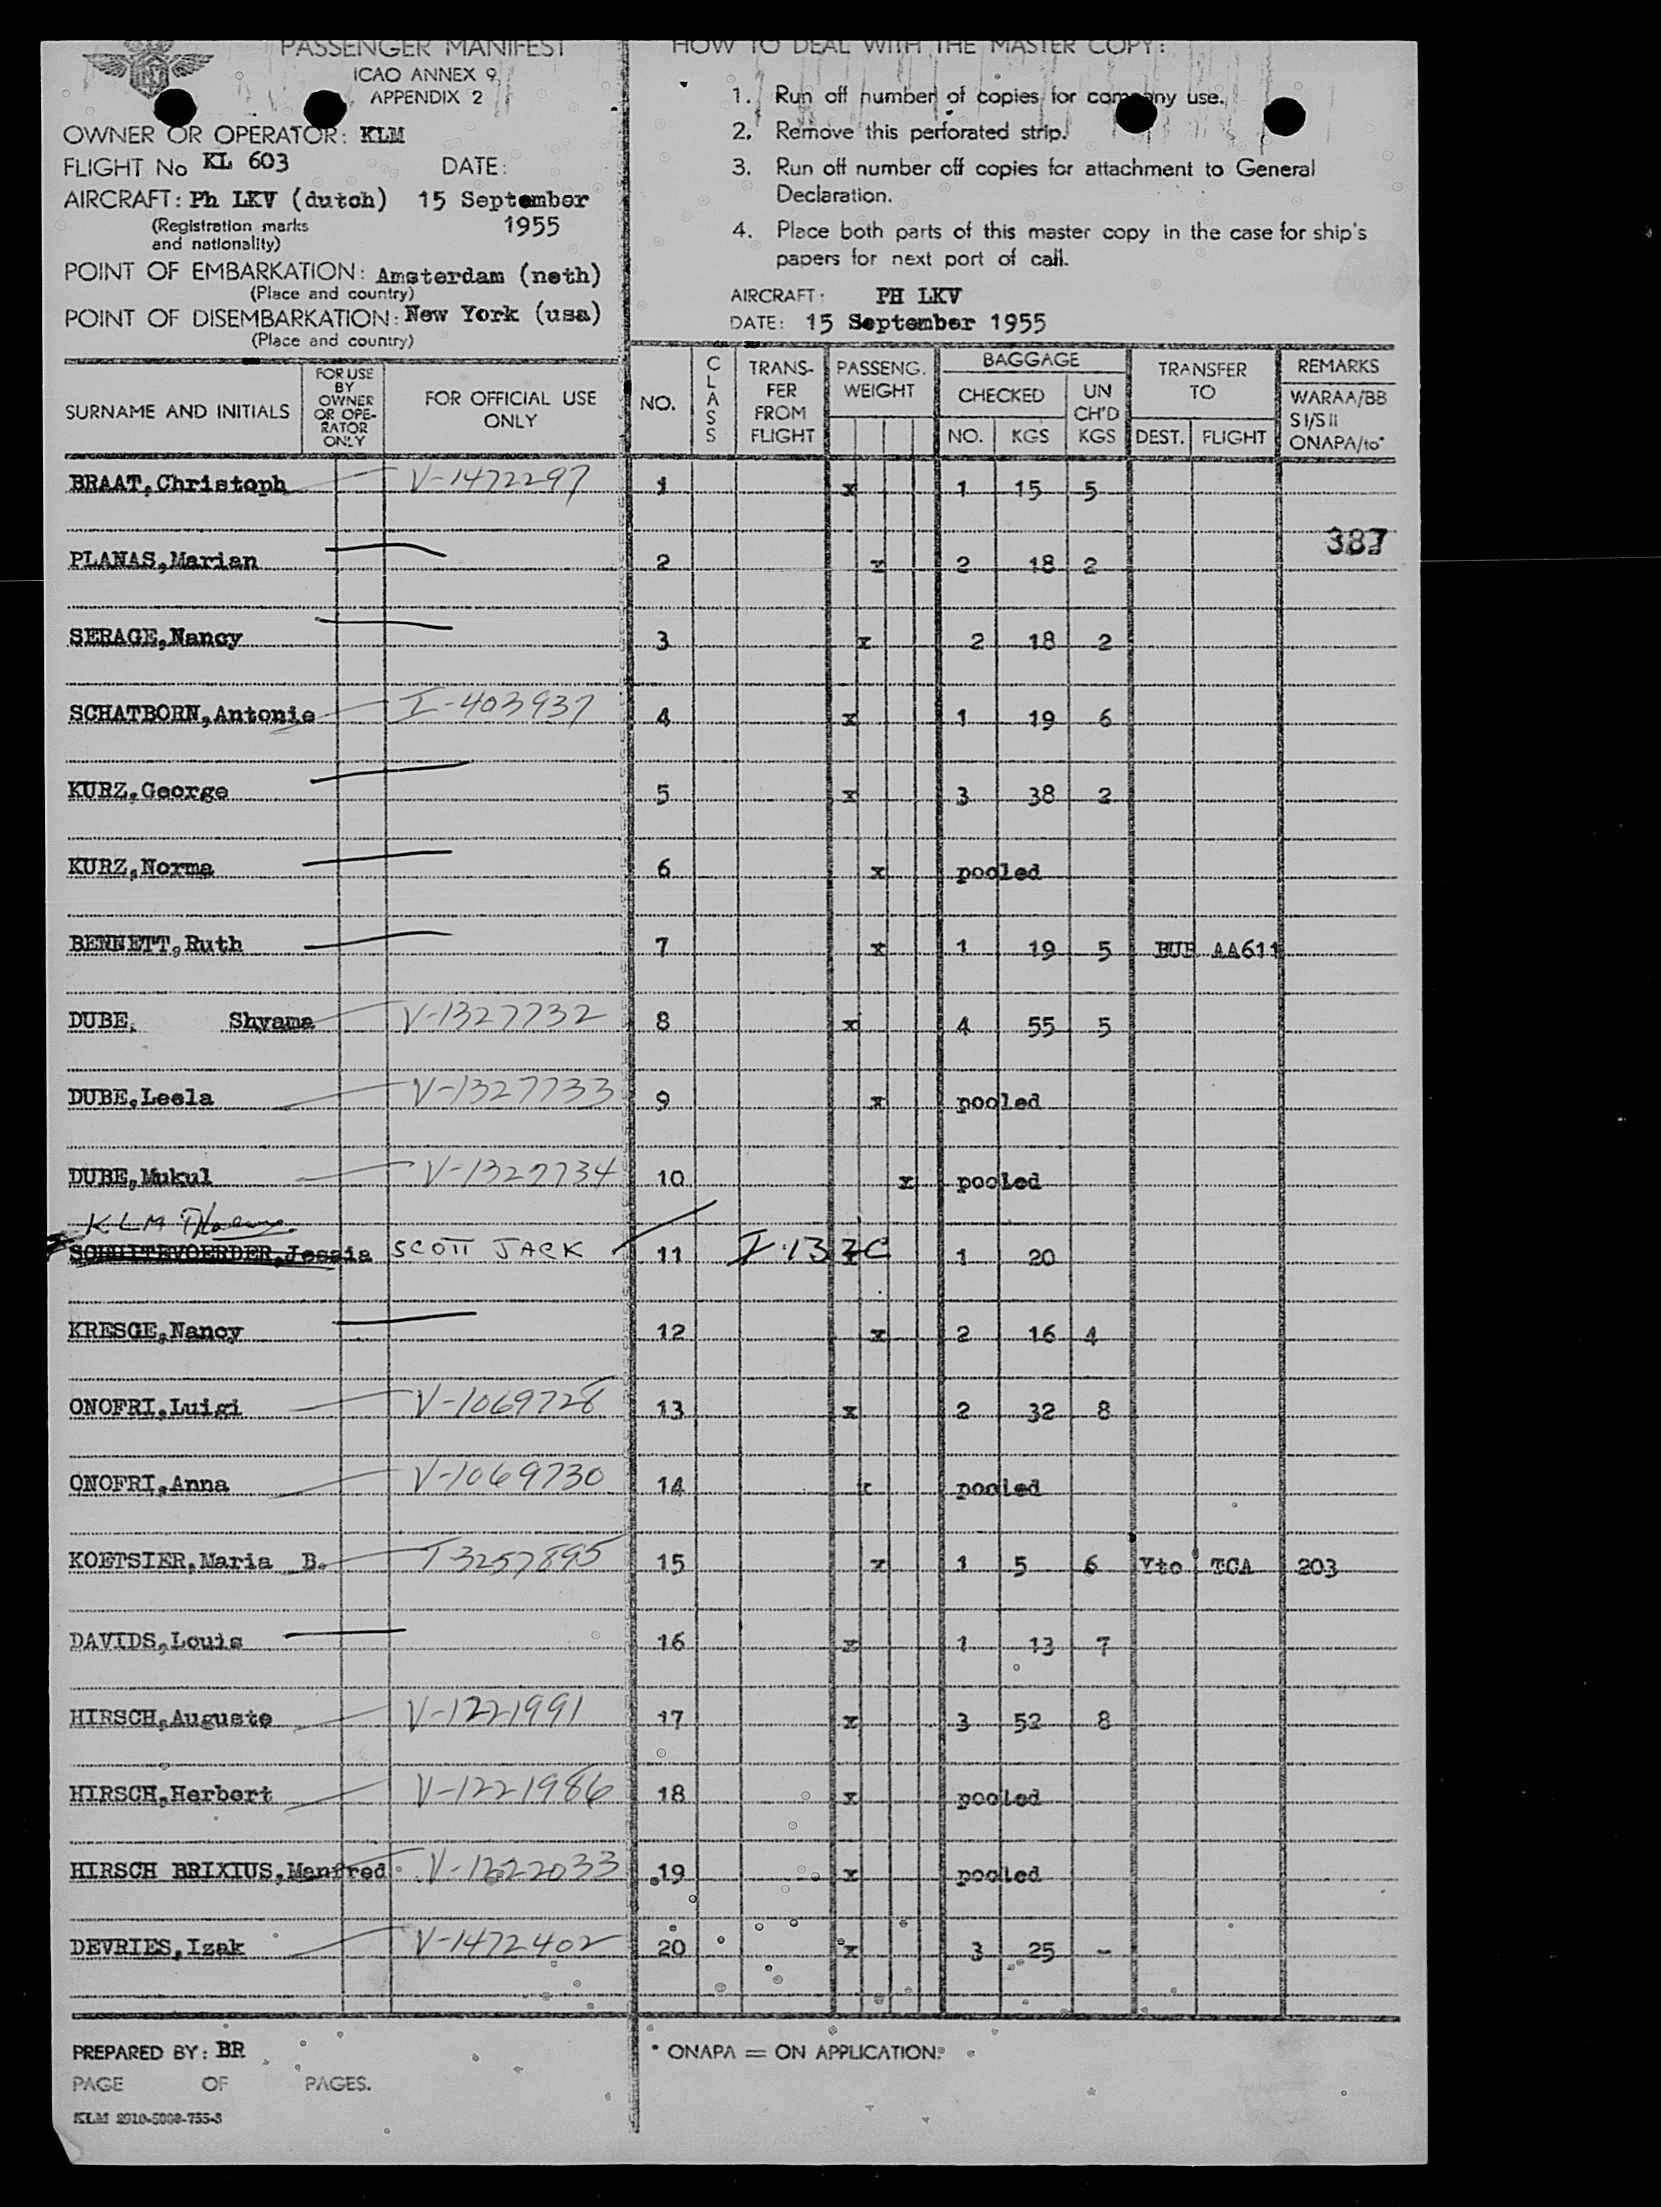 PASSENGER MANIFEST
ICAO ANNEX 9
APPENDIX 2
OWNER OR OPERATOR: KLM
FLIGHT No KL 603 DATE:
AIRCRAFT: Ph LKV (dutch) 15 September
(Registration marks 1955
and nationality)
POINT OF EMBARKATION: Amsterdam (neth)
(Place and country)
POINT OF DISEMBARKATION: New York (usa)
(Place and country)
HOW TO DEAL WITH THE MASTER COPY:
1. Run off number of copies for company use.
2. Remove this perforated strip.
3. Run off number off copies for attachment to General
Declaration.
4. Place both parts of this master copy in the case for ship's
papers for next port of call.
AIRCRAFT: PH LKV
DATE: 15 September 1955
SURNAME AND INITIALS FOR USE BY OWNER OR OPE-RATOR ONLY FOR OFFICIAL USE ONLY NO. CLASS TRANS-FER FROM FLIGHT PASSENG. WEIGHT BAGGAGE CHECKED NO. KGS UN CH'D KGS TRANSFER TO DEST. FLIGHT REMARKS WARAA/BB SI/SII ONAPA/to*
BRAAT,Christoph V-1472297 1 x 1 15 5
387
PLANAS,Marian 2 x 2 18 2
SERAGE,Nancy 3 x 2 18 2
SCHATBORN,Antonie I-403937 4 x 1 19 6
KURZ,George 5 x 3 38 2
KURZ,Norma 6 x pooled
BENNETT,Ruth 7 x 1 19 5 BUF AA611
DUBE, Shyama V-1327732 8 x 4 55 5
DUBE,Leela V-1327733 9 x pooled
DUBE,Mukul V-1327734 10 x pooled
KLM
SCHUITEVOERDER,Jessia SCOTT JACK 11 1 20
KRESGE,Nancy 12 x 2 16 4
ONOFRI,Luigi V-1069728 13 x 2 32 8
ONOFRI,Anna V-1069730 14 x pooled
KOETSIER,Maria B. T3257895 15 x 1 5 6 Yto TCA 203
DAVIDS,Louis 16 x 1 13 7
HIRSCH,Auguste V-1221991 17 x 3 52 8
HIRSCH,Herbert V-1221986 18 x pooled
HIRSCH BRIXIUS,Manfred V-1222033 19 x pooled
DEVRIES,Izak V-1472402 20 x 3 25 -
PREPARED BY: BR
PAGE OF PAGES.
* ONAPA = ON APPLICATION.